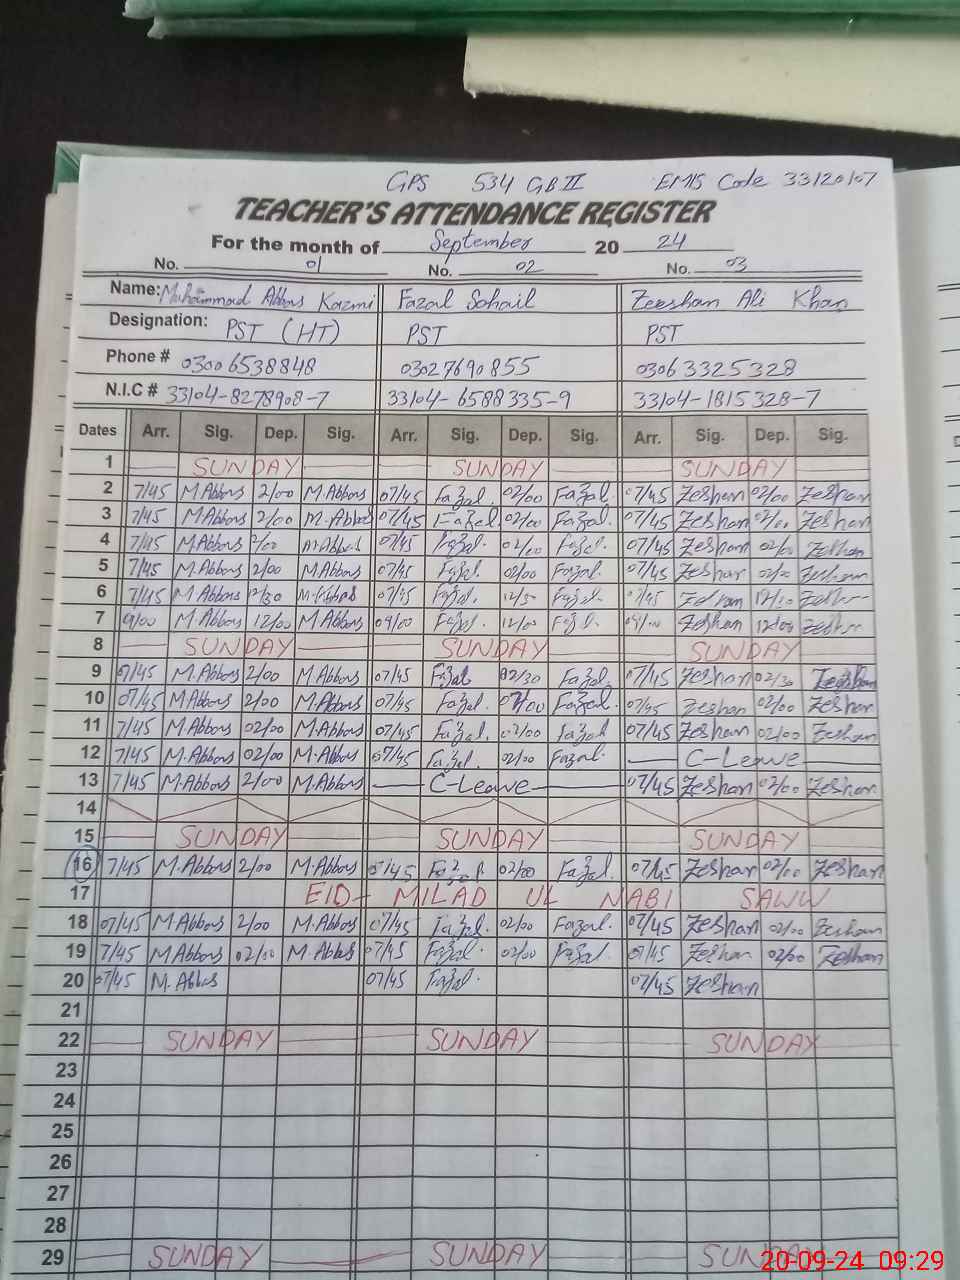 GPS 534 GB II EMIS Code 33120107
TEACHER'S ATTENDANCE REGISTER
For the month of September 20 24
No. 01 No. 02 No. 03
Name: Muhammad Abbas Kazmi Fazal Sohail Zeeshan Ali Khan
Designation: PST (HT) PST PST
Phone # 0300 6538848 0302 7690855 0306 3325328
N.I.C # 33104-8278908-7 33104-6588335-9 33104-1815328-7
Dates Arr. Sig. Dep. Sig. Arr. Sig. Dep. Sig. Arr. Sig. Dep. Sig.
1 SUNDAY SUNDAY SUNDAY
2 7/45 M.Abbas 2/00 M.Abbas 07/45 Fazal. 02/00 Fazal. 07/45 Zeshan 02/00 Zeshan
3 7/45 M.Abbas 2/00 M.Abbas 07/45 Fazal. 02/00 Fazal. 07/45 Zeshan 02/00 Zeshan
4 7/45 M.Abbas 2/00 M.Abbas 07/45 Fazal. 02/00 Fazal. 07/45 Zeshan 02/00 Zeshan
5 7/45 M.Abbas 2/00 M.Abbas 07/45 Fazal. 02/00 Fazal. 07/45 Zeshan 02/00 Zeshan
6 7/45 M.Abbas 12/30 M.Abbas 07/45 Fazal. 12/30 Fazal. 07/45 Zeshan 12/30 Zeshan
7 9/00 M.Abbas 12/00 M.Abbas 09/00 Fazal. 12/00 Fazal. 09/00 Zeshan 12/00 Zeshan
8 SUNDAY SUNDAY SUNDAY
9 07/45 M.Abbas 2/00 M.Abbas 07/45 Fazal 02/30 Fazal. 07/45 Zeshan 02/30 Zeeshan
10 07/45 M.Abbas 2/00 M.Abbas 07/45 Fazal. 02/00 Fazal. 07/45 Zeshan 02/00 Zeshan
11 7/45 M.Abbas 02/00 M.Abbas 07/45 Fazal. 02/00 Fazal. 07/45 Zeshan 02/00 Zeshan
12 7/45 M.Abbas 02/00 M.Abbas 07/45 Fazal. 02/00 Fazal. C-Leave
13 7/45 M.Abbas 2/00 M.Abbas C-Leave 07/45 Zeshan 02/00 Zeshan
14
15 SUNDAY SUNDAY SUNDAY
16 7/45 M.Abbas 2/00 M.Abbas 07/45 Fazal 02/00 Fazal. 07/45 Zeshan 02/00 Zeshan
17 EID- MILAD UL NABI SAWW
18 07/45 M.Abbas 2/00 M.Abbas 07/45 Fazal. 02/00 Fazal. 07/45 Zeshan 02/00 Zeshan
19 7/45 M.Abbas 02/00 M.Abbas 07/45 Fazal. 02/00 Fazal. 07/45 Zeshan 02/00 Zeshan
20 07/45 M.Abbas 07/45 Fazal. 07/45 Zeshan
21
22 SUNDAY SUNDAY SUNDAY
23
24
25
26
27
28
29 SUNDAY SUNDAY SUNDAY
20-09-24 09:29